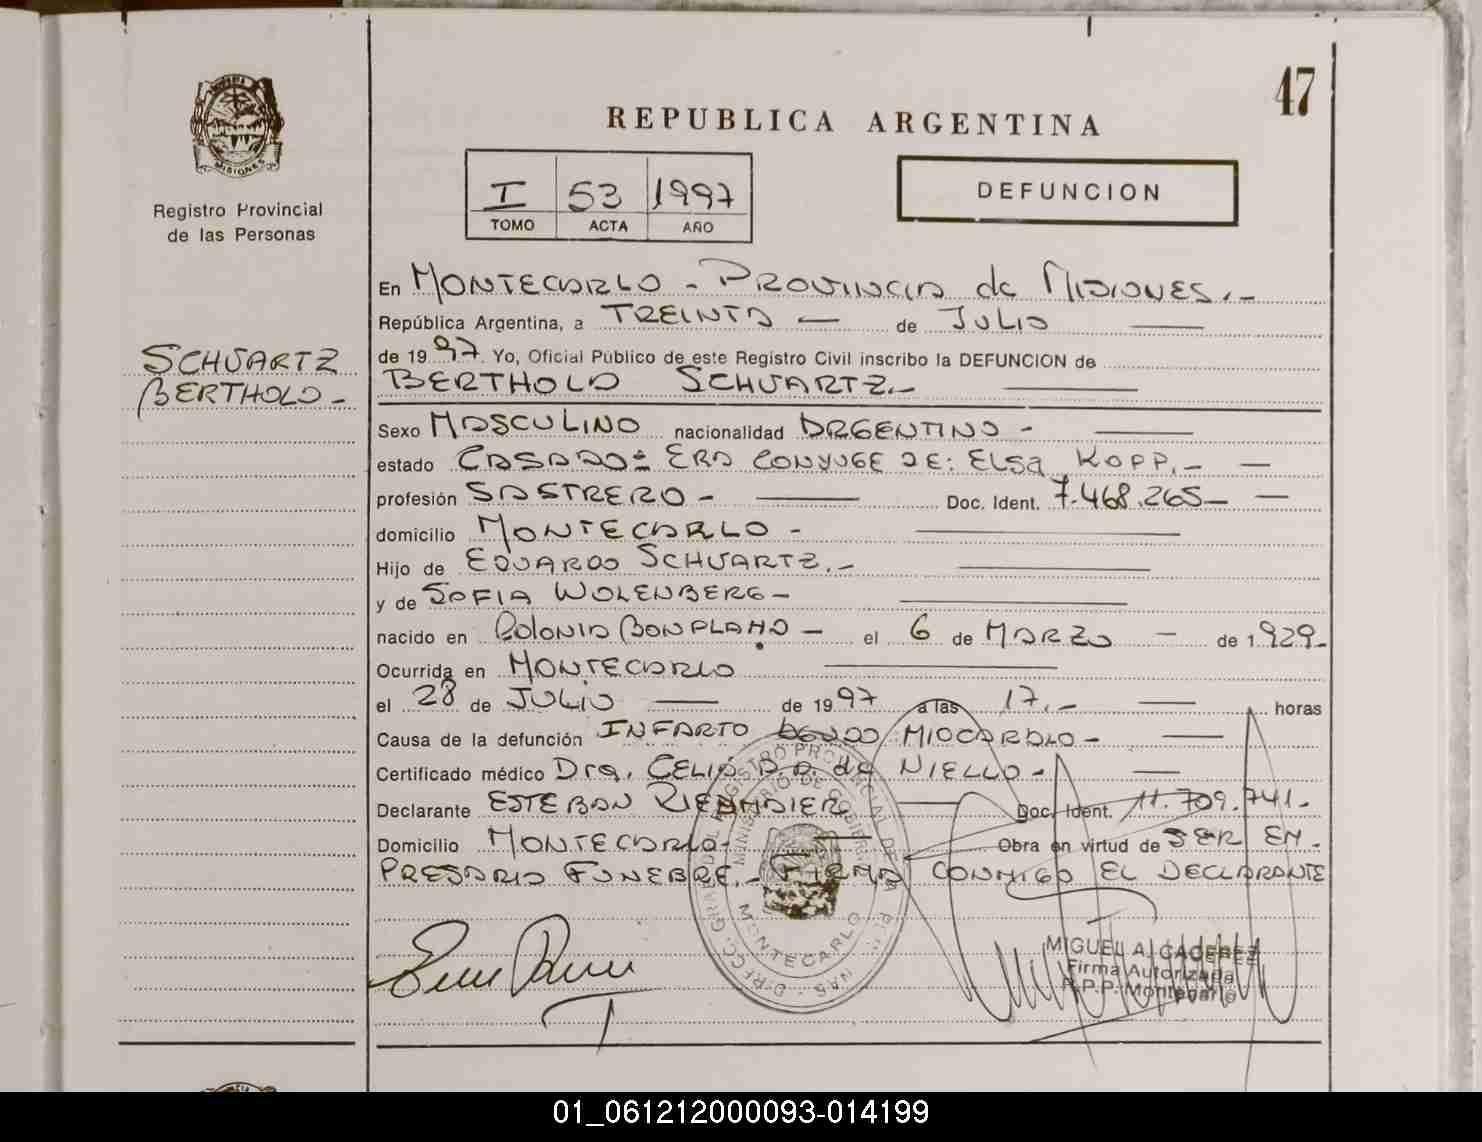 47
REPUBLICA ARGENTINA
MISIONES
Registro Provincial
de las Personas
I 53 1997
TOMO ACTA AÑO
DEFUNCION
SCHUARTZ
BERTHOLD -
En MONTECARLO - PROVINCIA de MISIONES.-
República Argentina, a TREINTA — de JULIO —
de 1997. Yo, Oficial Público de este Registro Civil inscribo la DEFUNCION de
BERTHOLD SCHUARTZ.- —
Sexo MASCULINO nacionalidad ARGENTINO - —
estado CASADO: ERA CONYUGE DE: ELSA KOPP.- —
profesión SASTRERO - — Doc. Ident. 7.468.265- —
domicilio MONTECARLO - —
Hijo de EDUARDO SCHUARTZ.- —
y de SOFIA WOLENBERG - —
nacido en Colonia BONPLAND - el 6 de MARZO — de 1929-
Ocurrida en MONTECARLO —
el 28 de JULIO — de 1997 a las 17.- — horas
Causa de la defunción INFARTO AGUDO MIOCARDIO - —
Certificado médico Dra. CELIA de NIELLO - —
Declarante ESTEBAN — Doc. Ident. 11.709.741-
Domicilio MONTECARLO - — Obra en virtud de SER EM-
PRESARIO FUNEBRE.- FIRMA CONMIGO EL DECLARANTE
MONTECARLO
MIGUEL A. CACEREZ
Firma Autorizada
R.P.P. Montecarlo
01_061212000093-014199